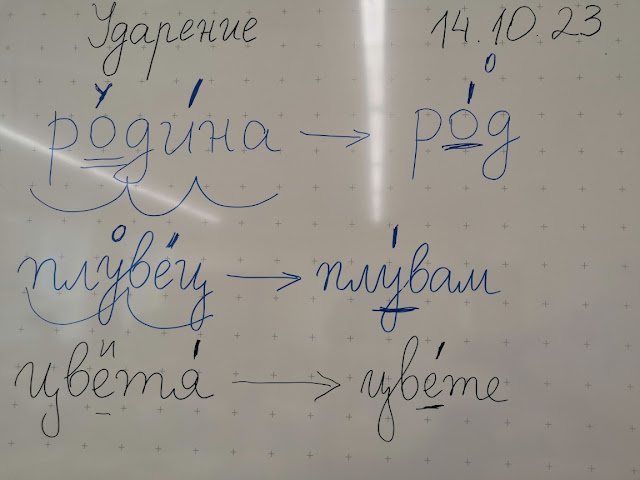 Ударение 14.10.23
у о
роди́на → ро́д
о
плуве́ц → плу́вам
и
цветя́ → цве́те